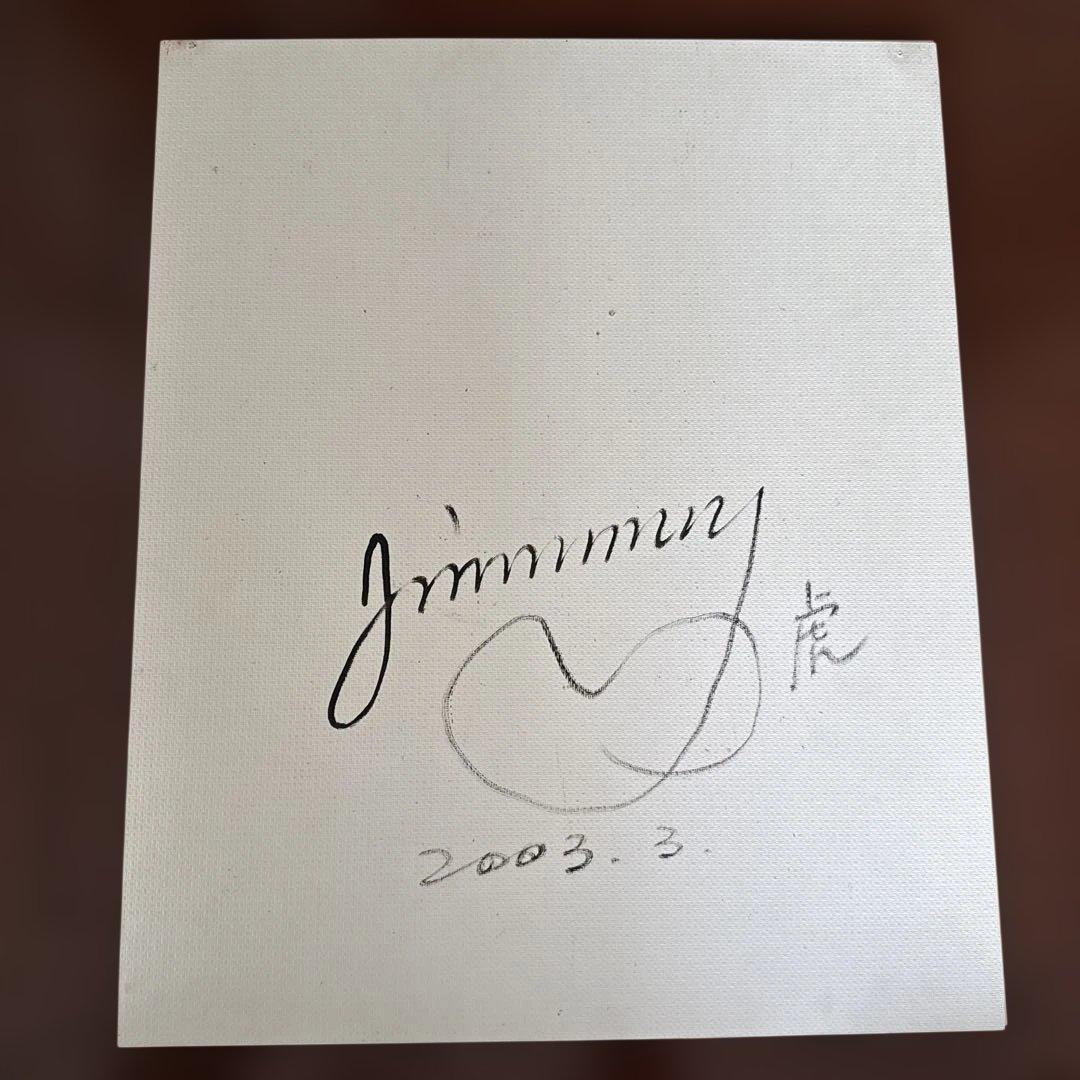 Jimmy
虎
2003.3.